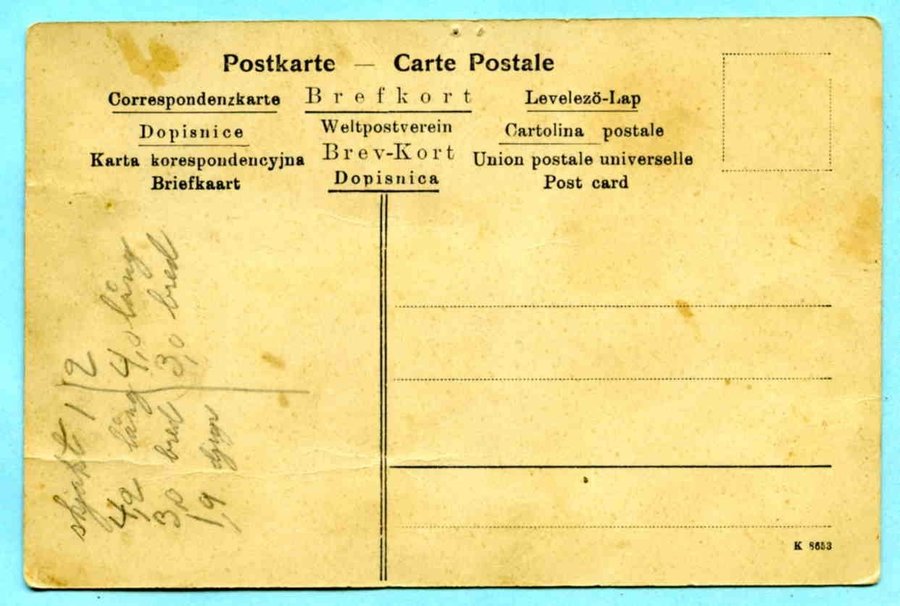 Postkarte — Carte Postale
Correspondenzkarte Brefkort Levelező-Lap
Dopisnice Weltpostverein Cartolina postale
Karta korespondencyjna Brev-Kort Union postale universelle
Briefkaart Dopisnica Post card
K 8653
1 | 2
4,2 lång | 4,0 lång
3,0 bred | 3,0 bred
19